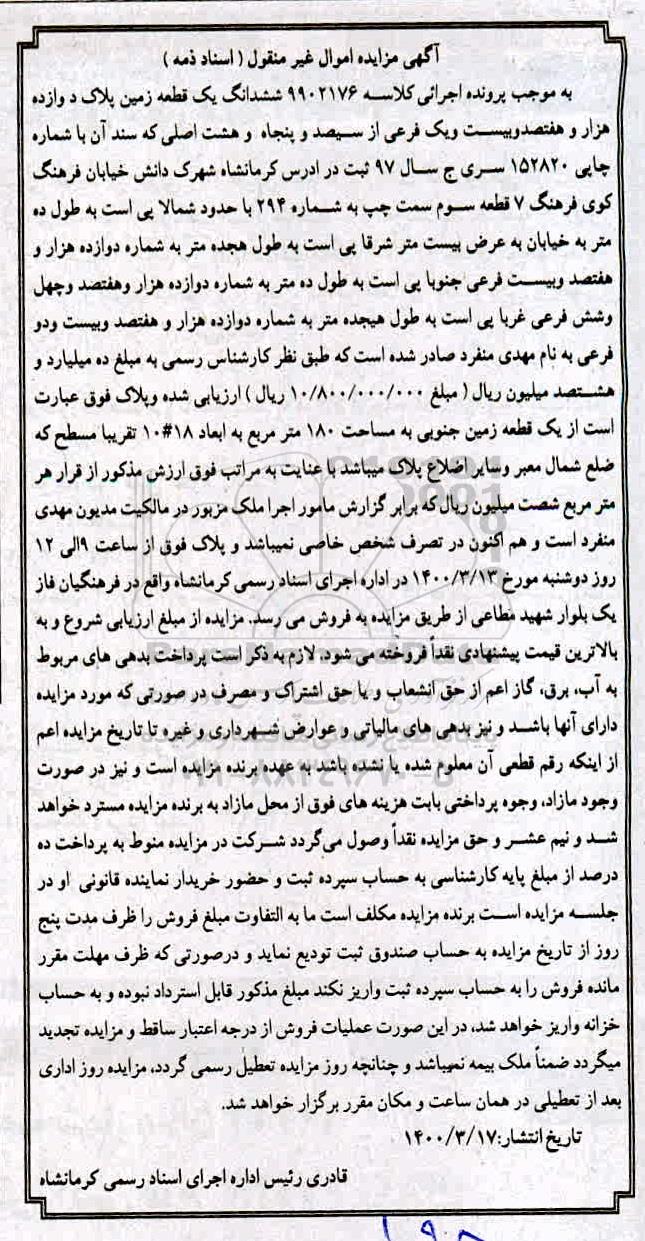 آگهی مزایده اموال غیر منقول ( اسناد ذمه )
به موجب پرونده اجرائی کلاسه ۹۹۰۲۱۷۶ ششدانگ یک قطعه زمین پلاک د وازده
هزار و هفتصدوبیست ویک فرعی از سیصد و پنجاه و هشت اصلی که سند آن با شماره
چاپی ۱۵۲۸۲۰ سری ج سال ۹۷ ثبت در ادرس کرمانشاه شهرک دانش خیابان فرهنگ
کوی فرهنگ ۷ قطعه سوم سمت چپ به شماره ۲۹۴ با حدود شمالا پی است به طول ده
متر به خیابان به عرض بیست متر شرقا پی است به طول هجده متر به شماره دوازده هزار و
هفتصد وبیست فرعی جنوبا پی است به طول ده متر به شماره دوازده هزار وهفتصد وچهل
وشش فرعی غربا پی است به طول هیجده متر به شماره دوازده هزار و هفتصد وبیست ودو
فرعی به نام مهدی منفرد صادر شده است که طبق نظر کارشناس رسمی به مبلغ ده میلیارد و
هشتصد میلیون ریال ( مبلغ ۱۰/۸۰۰/۰۰۰/۰۰۰ ریال ) ارزیابی شده وپلاک فوق عبارت
است از یک قطعه زمین جنوبی به مساحت ۱۸۰ متر مربع به ابعاد ۱۸#۱۰ تقریبا مسطح که
ضلع شمال معبر وسایر اضلاع پلاک میباشد با عنایت به مراتب فوق ارزش مذکور از قرار هر
متر مربع شصت میلیون ریال که برابر گزارش مامور اجرا ملک مزبور در مالکیت مدیون مهدی
منفرد است و هم اکنون در تصرف شخص خاصی نمیباشد و پلاک فوق از ساعت ۹الی ۱۲
روز دوشنبه مورخ ۱۴۰۰/۳/۱۳ در اداره اجرای اسناد رسمی کرمانشاه واقع در فرهنگیان فاز
یک بلوار شهید مطاعی از طریق مزایده به فروش می رسد. مزایده از مبلغ ارزیابی شروع و به
بالاترین قیمت پیشنهادی نقداً فروخته می شود. لازم به ذکر است پرداخت بدهی های مربوط
به آب، برق، گاز اعم از حق انشعاب و یا حق اشتراک و مصرف در صورتی که مورد مزایده
دارای آنها باشد و نیز بدهی های مالیاتی و عوارض شهرداری و غیره تا تاریخ مزایده اعم
از اینکه رقم قطعی آن معلوم شده یا نشده باشد به عهده برنده مزایده است و نیز در صورت
وجود مازاد، وجوه پرداختی بابت هزینه های فوق از محل مازاد به برنده مزایده مسترد خواهد
شد و نیم عشر و حق مزایده نقداً وصول می‌گردد شرکت در مزایده منوط به پرداخت ده
درصد از مبلغ پایه کارشناسی به حساب سپرده ثبت و حضور خریدار نماینده قانونی او در
جلسه مزایده است برنده مزایده مکلف است ما به التفاوت مبلغ فروش را ظرف مدت پنج
روز از تاریخ مزایده به حساب صندوق ثبت تودیع نماید و درصورتی که ظرف مهلت مقرر
مانده فروش را به حساب سپرده ثبت واریز نکند مبلغ مذکور قابل استرداد نبوده و به حساب
خزانه واریز خواهد شد، در این صورت عملیات فروش از درجه اعتبار ساقط و مزایده تجدید
میگردد ضمناً ملک بیمه نمیباشد و چنانچه روز مزایده تعطیل رسمی گردد، مزایده روز اداری
بعد از تعطیلی در همان ساعت و مکان مقرر برگزار خواهد شد.
تاریخ انتشار:۱۴۰۰/۳/۱۷
قادری رئیس اداره اجرای اسناد رسمی کرمانشاه